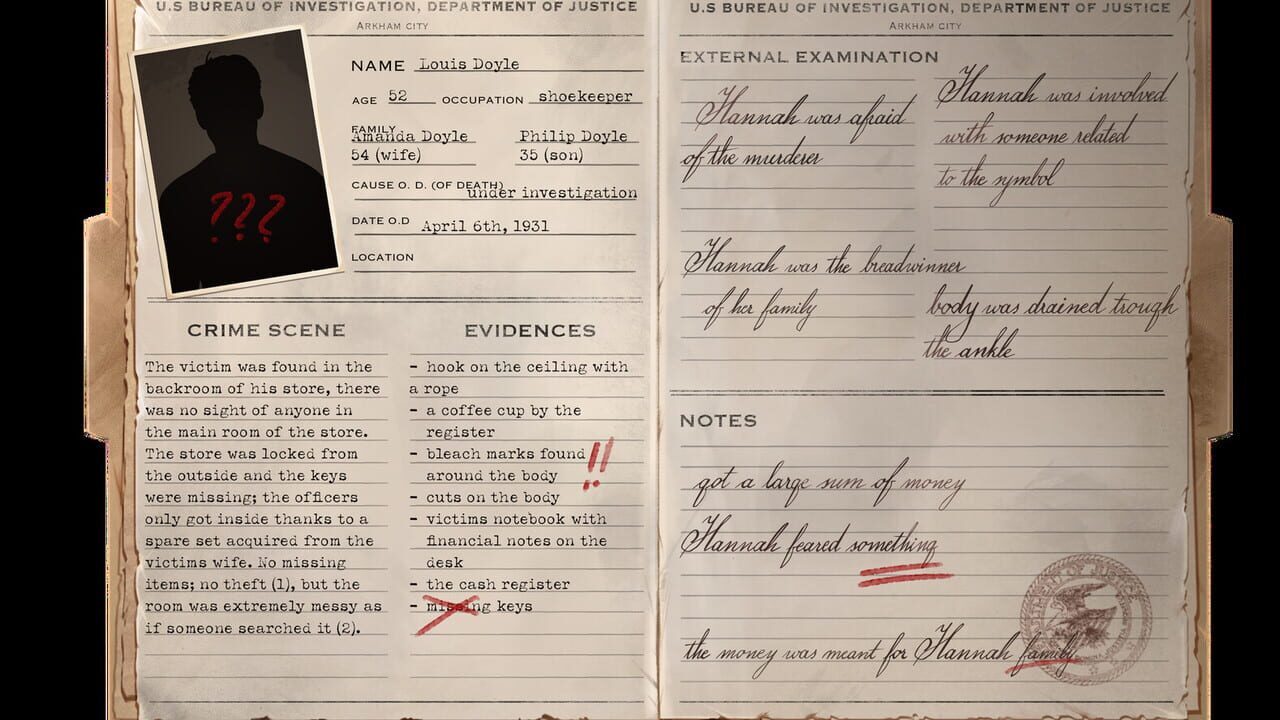 U.S BUREAU OF INVESTIGATION, DEPARTMENT OF JUSTICE
ARKHAM CITY
NAME Louis Doyle
AGE 52 OCCUPATION shoekeeper
FAMILY
Amanda Doyle Philip Doyle
54 (wife) 35 (son)
CAUSE O. D. (OF DEATH)
under investigation
DATE O.D April 6th, 1931
LOCATION
???
CRIME SCENE
The victim was found in the
backroom of his store, there
was no sight of anyone in
the main room of the store.
The store was locked from
the outside and the keys
were missing; the officers
only got inside thanks to a
spare set acquired from the
victims wife. No missing
items; no theft (1), but the
room was extremely messy as
if someone searched it (2).
EVIDENCES
- hook on the ceiling with
a rope
- a coffee cup by the
register
- bleach marks found
around the body
!!
- cuts on the body
- victims notebook with
financial notes on the
desk
- the cash register
- missing keys
U.S BUREAU OF INVESTIGATION, DEPARTMENT OF JUSTICE
ARKHAM CITY
EXTERNAL EXAMINATION
Hannah was afraid
of the murderer
Hannah was involved
with someone related
to the symbol
Hannah was the breadwinner
of her family
body was drained trough
the ankle
NOTES
got a large sum of money
Hannah feared something
the money was meant for Hannah family